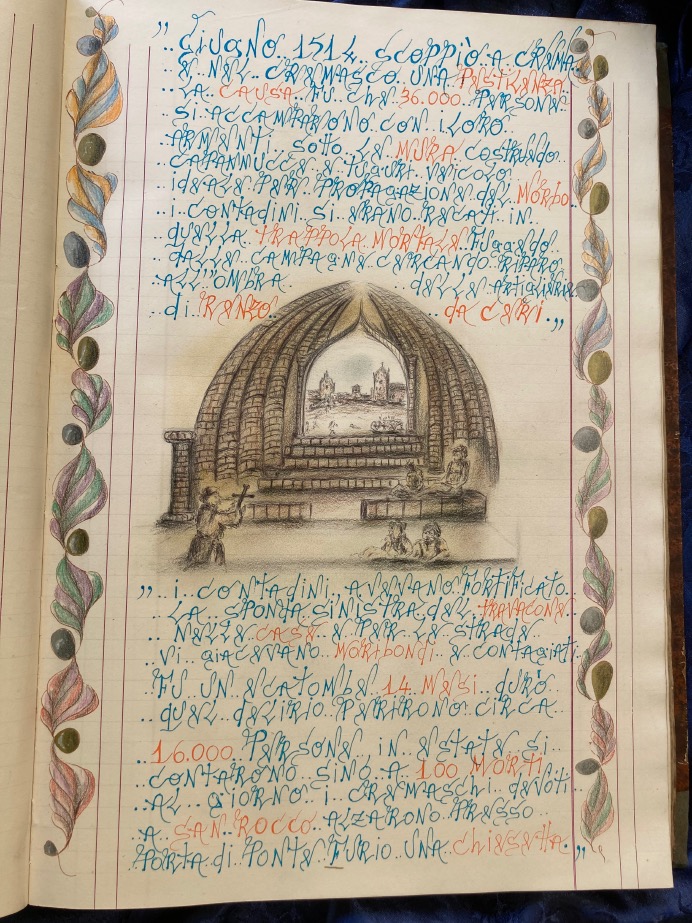 „.. Giugno 1514.. scoppiò.. a.. CREMA
E.. NEL.. CREMASCO.. UNA PESTILENZA..
.. LA.. CAUSA.. FU.. CHE.. 36.000.. PERSONE
.. SI.. ACCAMPARONO.. CON.. i LORO..
.. ARMENTI.. SOTTO.. LE.. MURA.. COSTRUENDO..
.. CAPANNUCCE.. E.. TUGURI.. VEICOLO
.. IDEALE.. PER.. PROPAGAZIONE.. DEL.. MORBO..
.. i CONTADINI.. SI.. ERANO.. RECATI.. IN
.. QUELLA.. TRAPPOLA.. MORTALE.. FUGGENDO..
.. DALLE.. CAMPAGNE.. CERCANDO.. RIPARO
ALL'OMBRA.. .. DELLE.. ARTIGLIERIE
.. di.. RENZO.. .. da CERI.. ”
„.. i.. CONTADINI.. AVEVANO.. FORTIFICATO..
.. LA.. SPONDA.. SINISTRA.. DEL.. TRAVACONE
.. NELLE.. CASE.. E.. PER.. LE.. STRADE..
.. Vi.. GIACEVANO.. MORIBONDI.. E.. CONTAGIATI..
FU.. UN.. ECATOMBE.. 14.. MESI.. DURÒ..
.. QUEL.. DELIRIO.. PERIRONO.. CIRCA..
.. 16.000.. PERSONE.. IN.. ESTATE.. SI..
.. CONTARONO.. SINO.. A.. 100 MORTI..
.. AL.. GIORNO.. i.. CREMASCHI.. DEVOTI
.. A.. SAN.. ROCCO.. ALZARONO.. PRESSO..
PORTA.. di.. PONTE.. FURIO.. UNA.. CHIESETTA.. ”